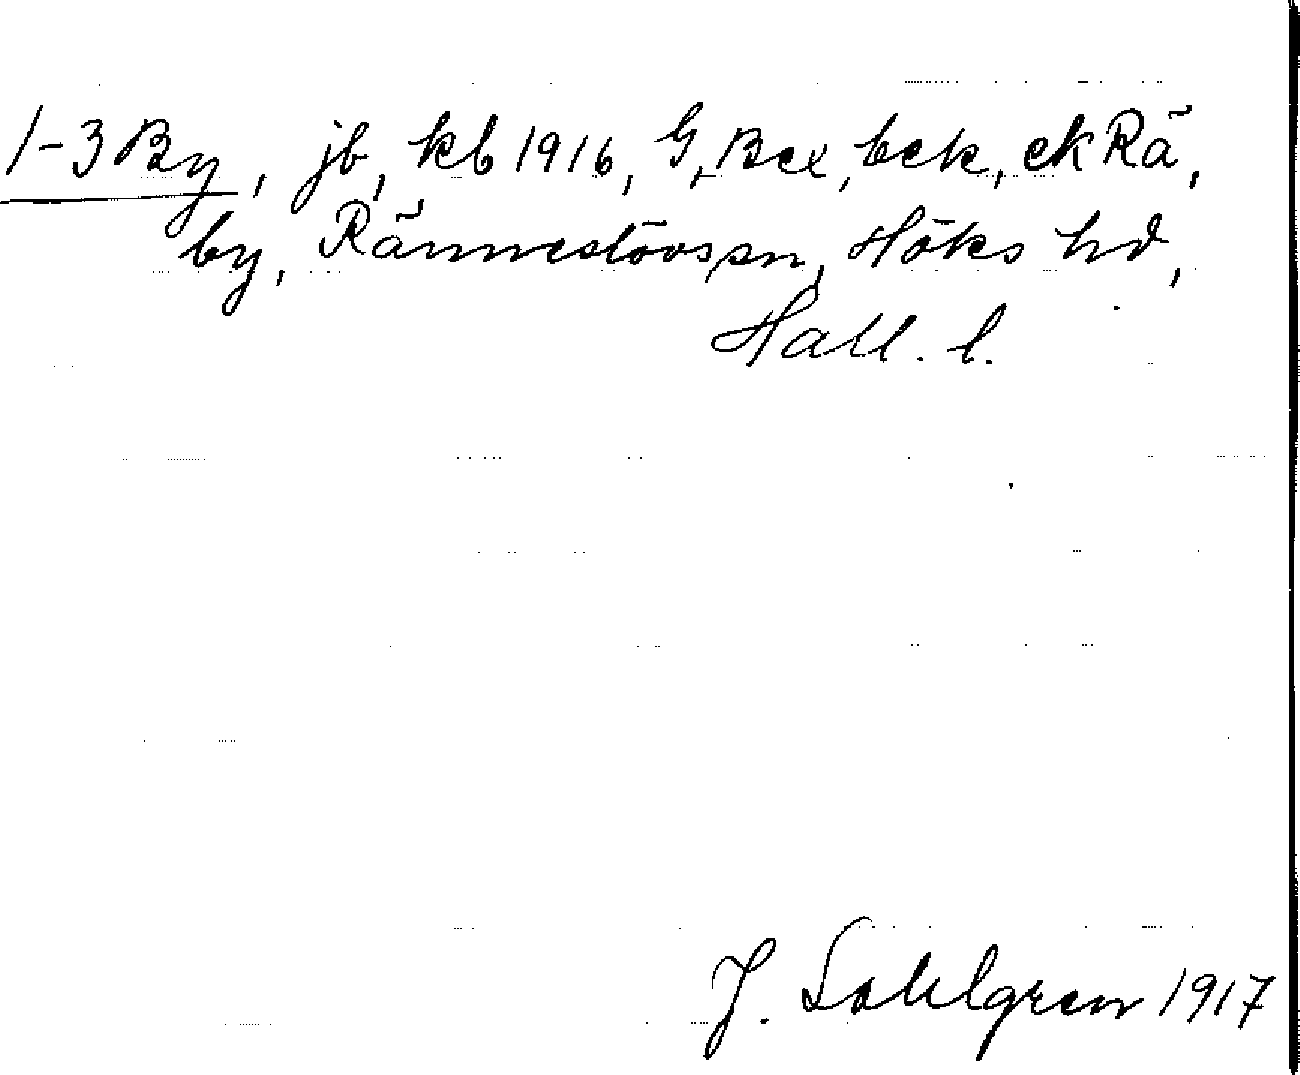 1-3 By, jb, kb 1916, G, Bex, bek, ek Rä,
by, Rännestövs sn, Höks hd,
Hall. l.
J. Sahlgren 1917